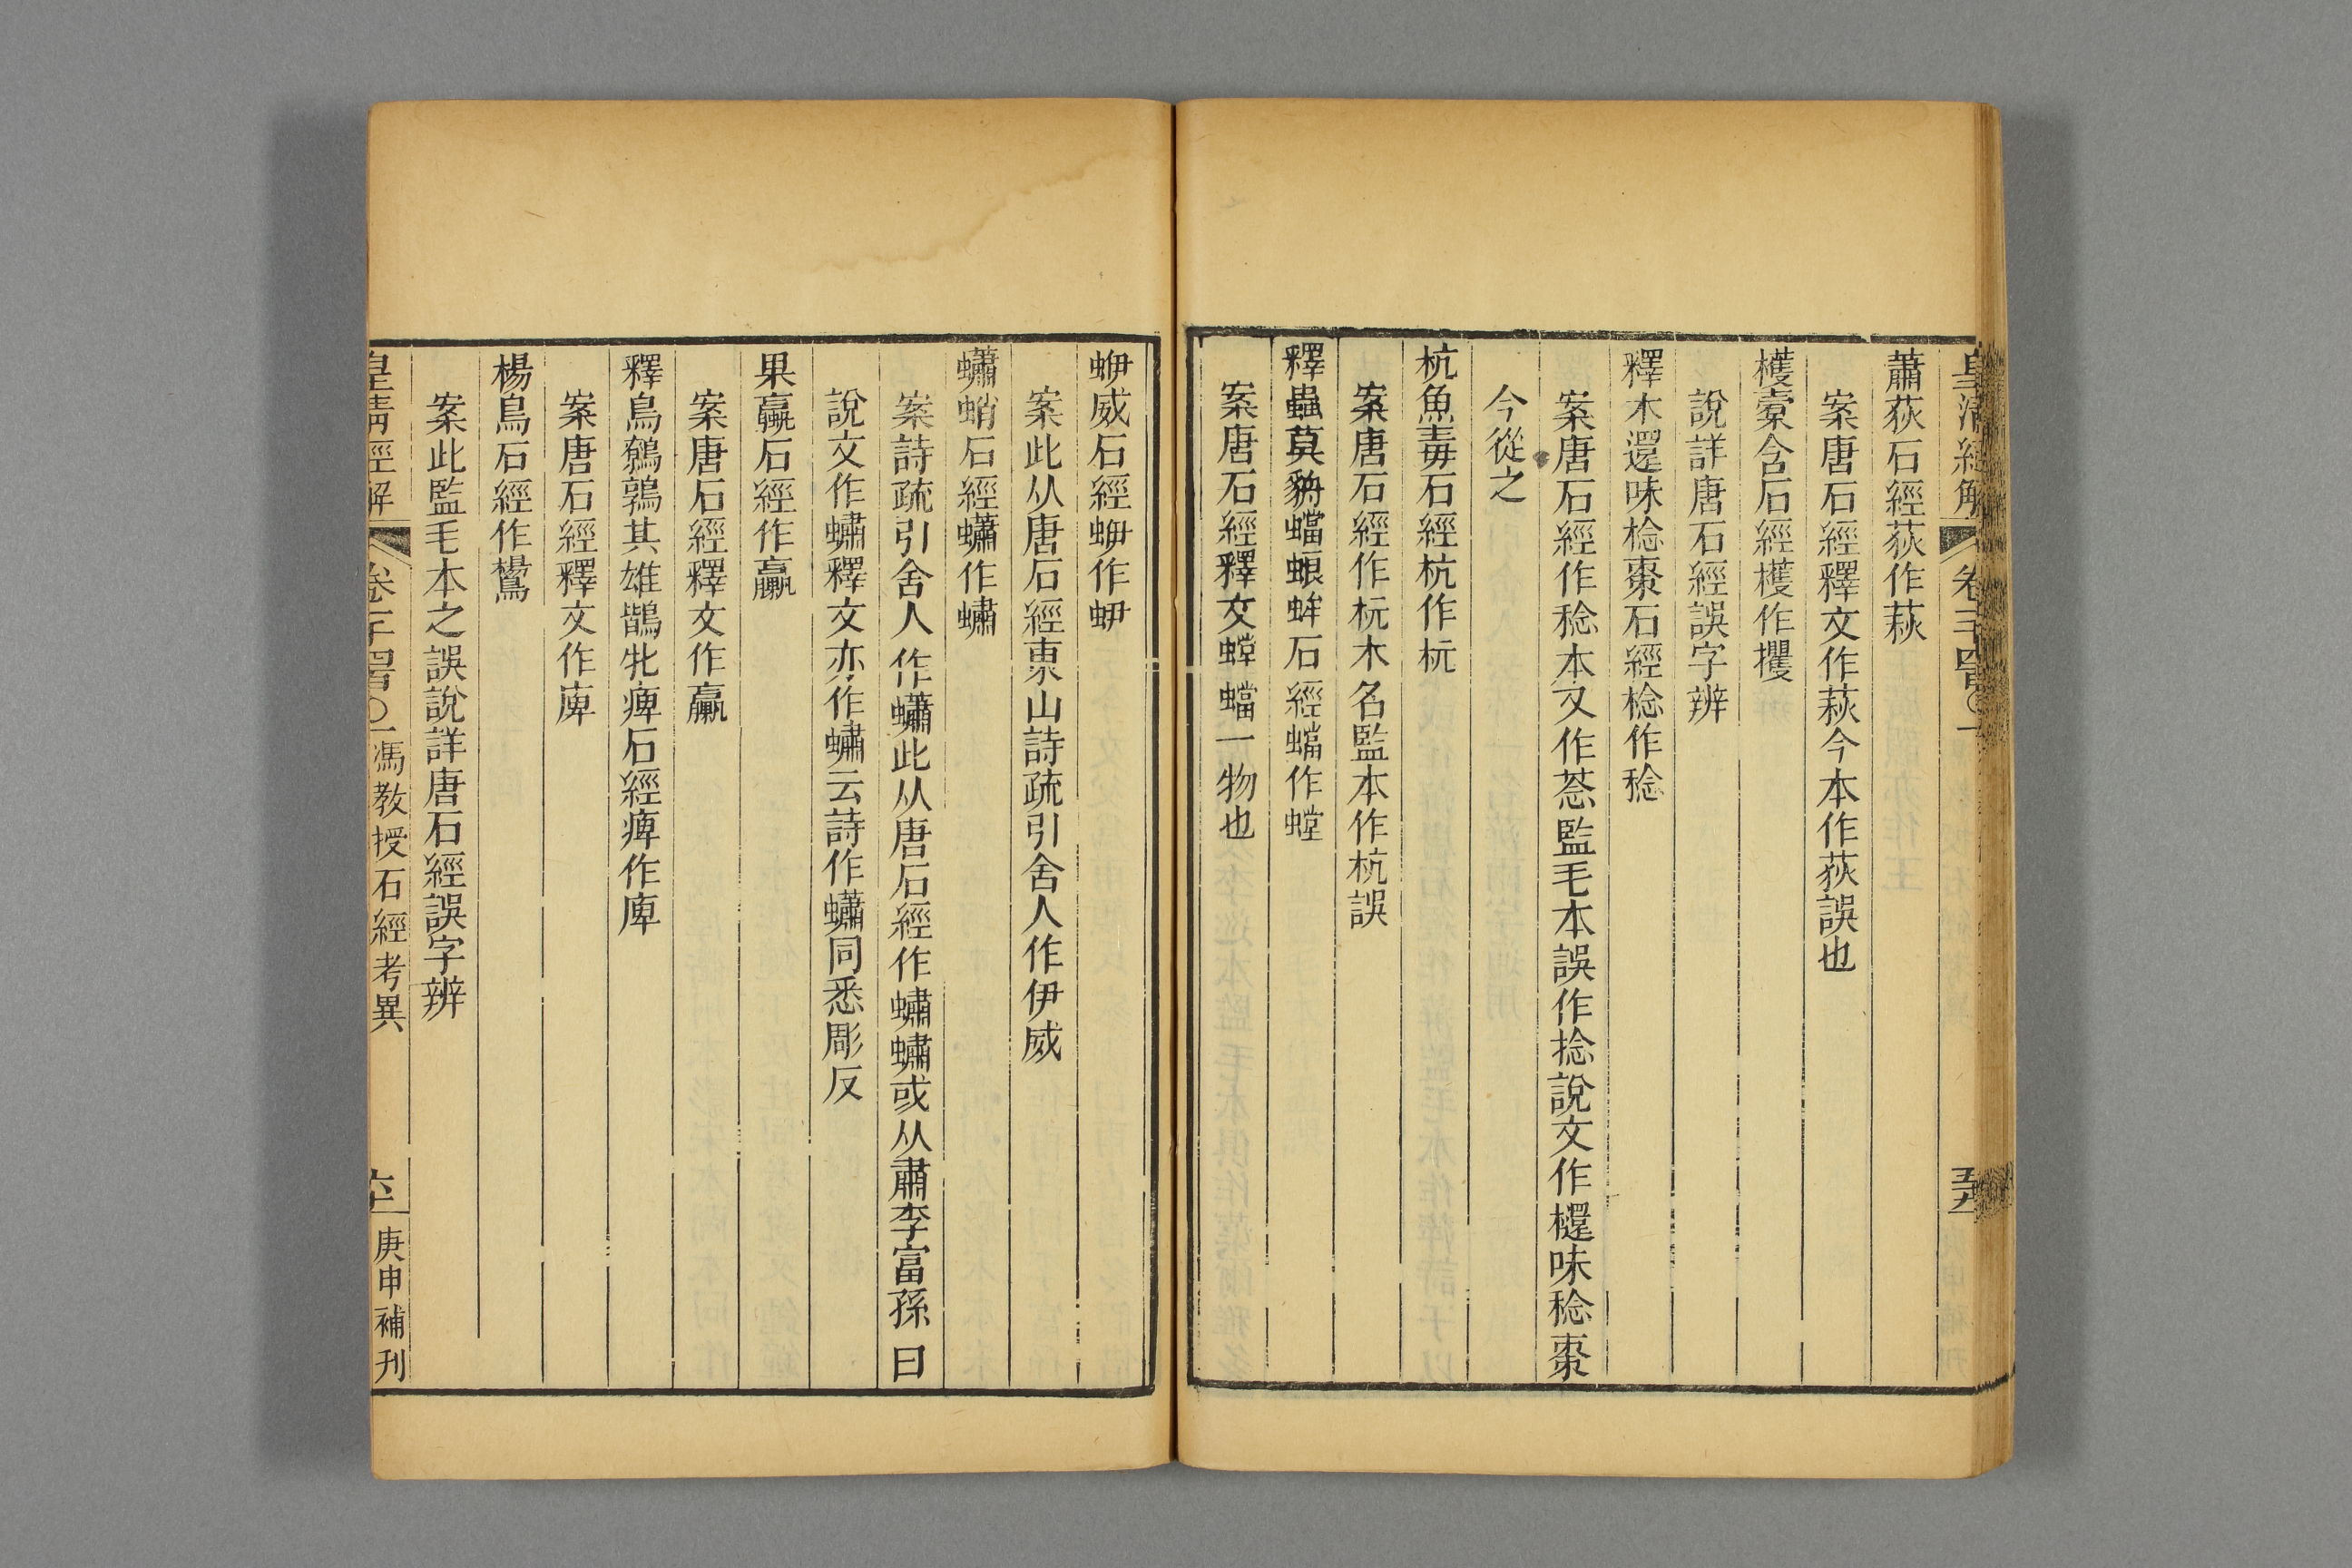 皇清經解 卷千四百〇一 五十九
蕭荻石經荻作萩
案唐石經釋文作萩今本作荻誤也
檴橐含石經檴作㩴
說詳唐石經誤字辨
釋木還味棯棗石經棯作稔
案唐石經作稔本又作荵監毛本誤作捻說文作樿味稔棗
今從之
杬魚毒石經杭作杬
案唐石經作杬木名監本作杭誤
釋蟲莫貈蟷蜋蛑石經蟷作螳
案唐石經釋文螳蟷一物也
蛜威石經蛜作蚜
案此从唐石經東山詩疏引舍人作伊威
蠨蛸石經蠨作蟰
案詩疏引舍人作蠨此从唐石經作蟰蟰或从肅李富孫曰
說文作蟰釋文亦作蟰云詩作蠨同悉彫反
果蠃石經作臝
案唐石經釋文作臝
釋鳥鷯鶉其雄鶛牝痺石經痺作庳
案唐石經釋文作庳
楊鳥石經作鸉
案此監毛本之誤說詳唐石經誤字辨
皇清經解 卷千四百〇一 馮教授石經考異 六十 庚申補刊